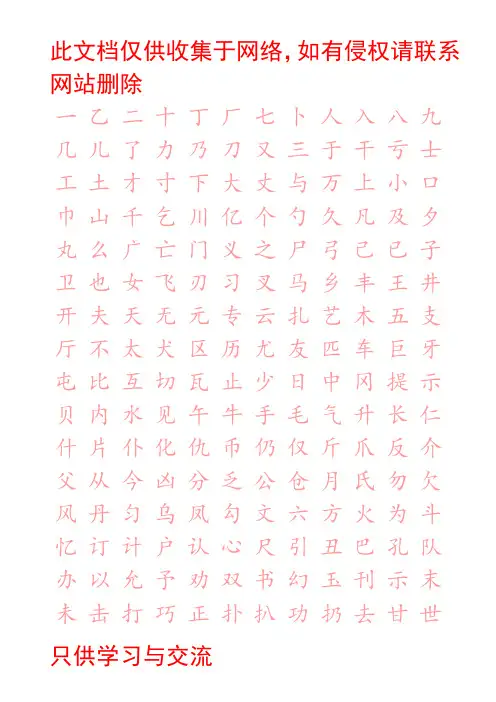 此文档仅供收集于网络，如有侵权请联系
网站删除
一 乙 二 十 丁 厂 七 卜 人 入 八 九
几 儿 了 力 乃 刀 又 三 于 干 亏 士
工 土 才 寸 下 大 丈 与 万 上 小 口
巾 山 千 乞 川 亿 个 勺 久 凡 及 夕
丸 么 广 亡 门 义 之 尸 弓 己 已 子
卫 也 女 飞 刃 习 叉 马 乡 丰 王 井
开 夫 天 无 元 专 云 扎 艺 木 五 支
厅 不 太 犬 区 历 尤 友 匹 车 巨 牙
屯 比 互 切 瓦 止 少 日 中 冈 提 示
贝 内 水 见 午 牛 手 毛 气 升 长 仁
什 片 仆 化 仇 币 仍 仅 斤 爪 反 介
父 从 今 凶 分 乏 公 仓 月 氏 勿 欠
风 丹 匀 乌 凤 勾 文 六 方 火 为 斗
忆 订 计 户 认 心 尺 引 丑 巴 孔 队
办 以 允 予 劝 双 书 幻 玉 刊 示 末
未 击 打 巧 正 扑 扒 功 扔 去 甘 世
只供学习与交流